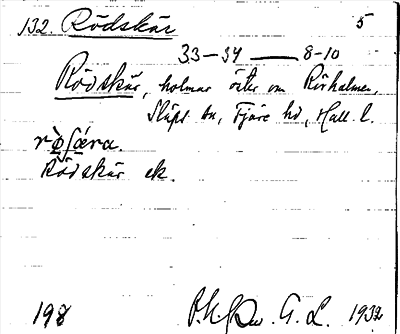 132. Rödskär 5
33–34 — 8-10
Rödskär, holmar öster om Rörholmen,
Släps sn, Fjäre hd, Hall. l.
Rödskär ek.
198 G. L. 1932